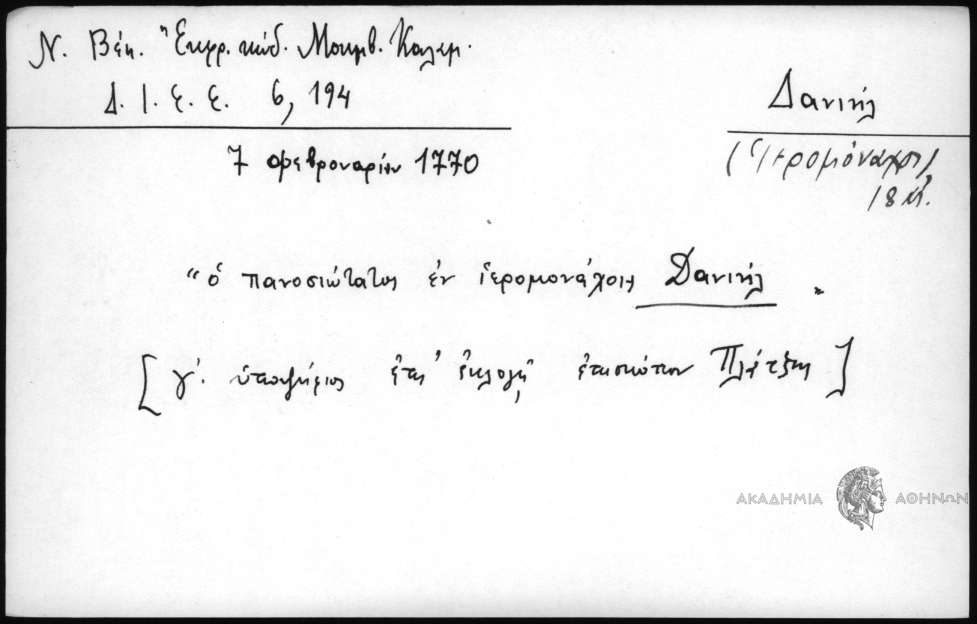 Ν. Βέη. "Εκφρ. κώδ. Μουμβ. Καλεμ.
Δ. Ι. Ε. Ε. 6, 194
Δανιήλ
(ἱερομόναχος)
18 αἰ.
7 φεβρουαρίου 1770
"ὁ πανοσιώτατος ἐν ἱερομονάχοις Δανιήλ "
[γ'. ὑποψήφιος ἐπὶ ἐκλογῇ ἐπισκόπου Πλάτζης]
ΑΚΑΔΗΜΙΑ ΑΘΗΝΩΝ